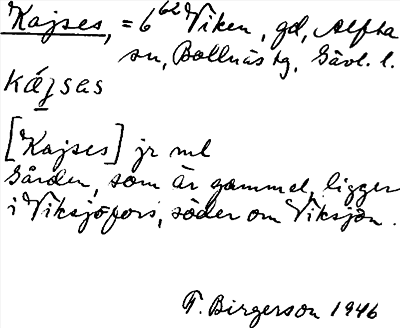 Kajses, = 6⁶² Viken, gd, Alfta
sn, Bollnäs tg, Gävl. l.
káj̲sas
[Kajses] jr ml
Gården, som är gammal, ligger
i Viksjöfors, söder om Viksjön.
T. Birgerson 1946